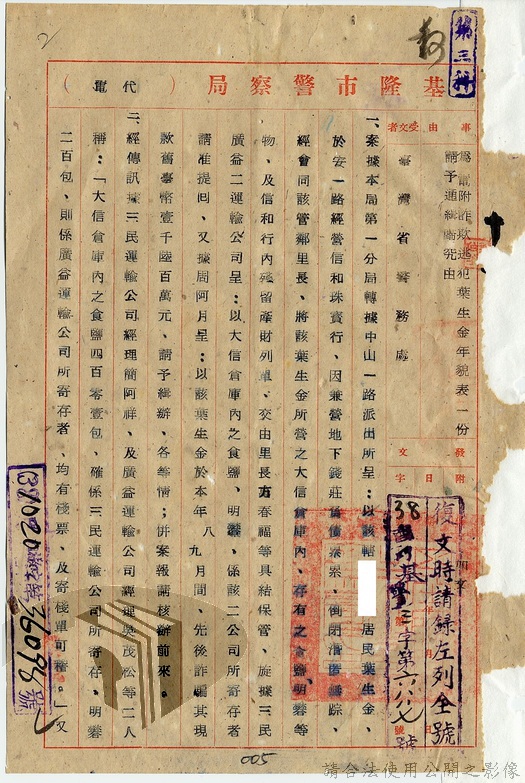 第三科
基隆市警察局（代電）
事由
受文者
為電附詐欺逃犯葉生金年貌表一份
請予通緝歸究由
臺灣省警務處
發文
附
字
日
復文時請錄左列全號
38
基警三字第六八八七號
一、案據本局第一分局轉據中山一路派出所呈：以該轄
居民葉生金、
於安一路經營信和珠寶行、因兼營地下錢莊負債累累、倒閉潛踪、
經會同該管鄰里長、將該葉生金所營之大信倉庫內、存有之食鹽明礬等
物、及信和行內殘留產財列單、交由里長方春福等具結保管、旋據三民
廣益二運輸公司呈：以大信倉庫內之食鹽、明礬、係該二公司所寄存者
請准提回、又據周阿月呈：以該葉生金於本年八九月間、先後詐騙其現
款舊臺幣壹千陸百萬元、請予緝辦、各等情；併案報請核辦前來。
二、經傳訊據三民運輸公司經理簡阿祥、及廣益運輸公司經理吳茂松等二人
稱：「大信倉庫內之食鹽四百零壹包、確係三民運輸公司所寄存、明礬
二百包、則係廣益運輸公司所寄存者、均有棧票、及寄棧單可稽。」又
36098
005
請合法使用公開之影像